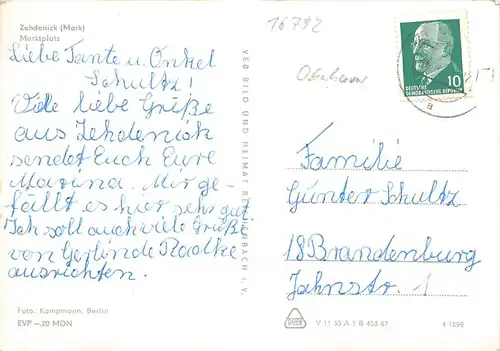 Zehdenick (Mark)
Marktplatz
Liebe Tante u. Onkel
Schultz!
Viele liebe Grüße
aus Zehdenick
sendet Euch Eure
Marina. Mir ge-
fällt es hier sehr gut
Ich soll auch viele Grüße
von Gerlinde Radtke
ausrichten.
Foto: Kampmann, Berlin
EVP –,20 MDN
VEB BILD UND HEIMAT REICHENBACH I. V.
16792
10
DEUTSCHE
DEMOKRATISCHE REPUBLIK
a
Familie
Günter Schultz
18 Brandenburg
Jahnstr. 1
V 11 50 A 1 B 403/67
4 1898